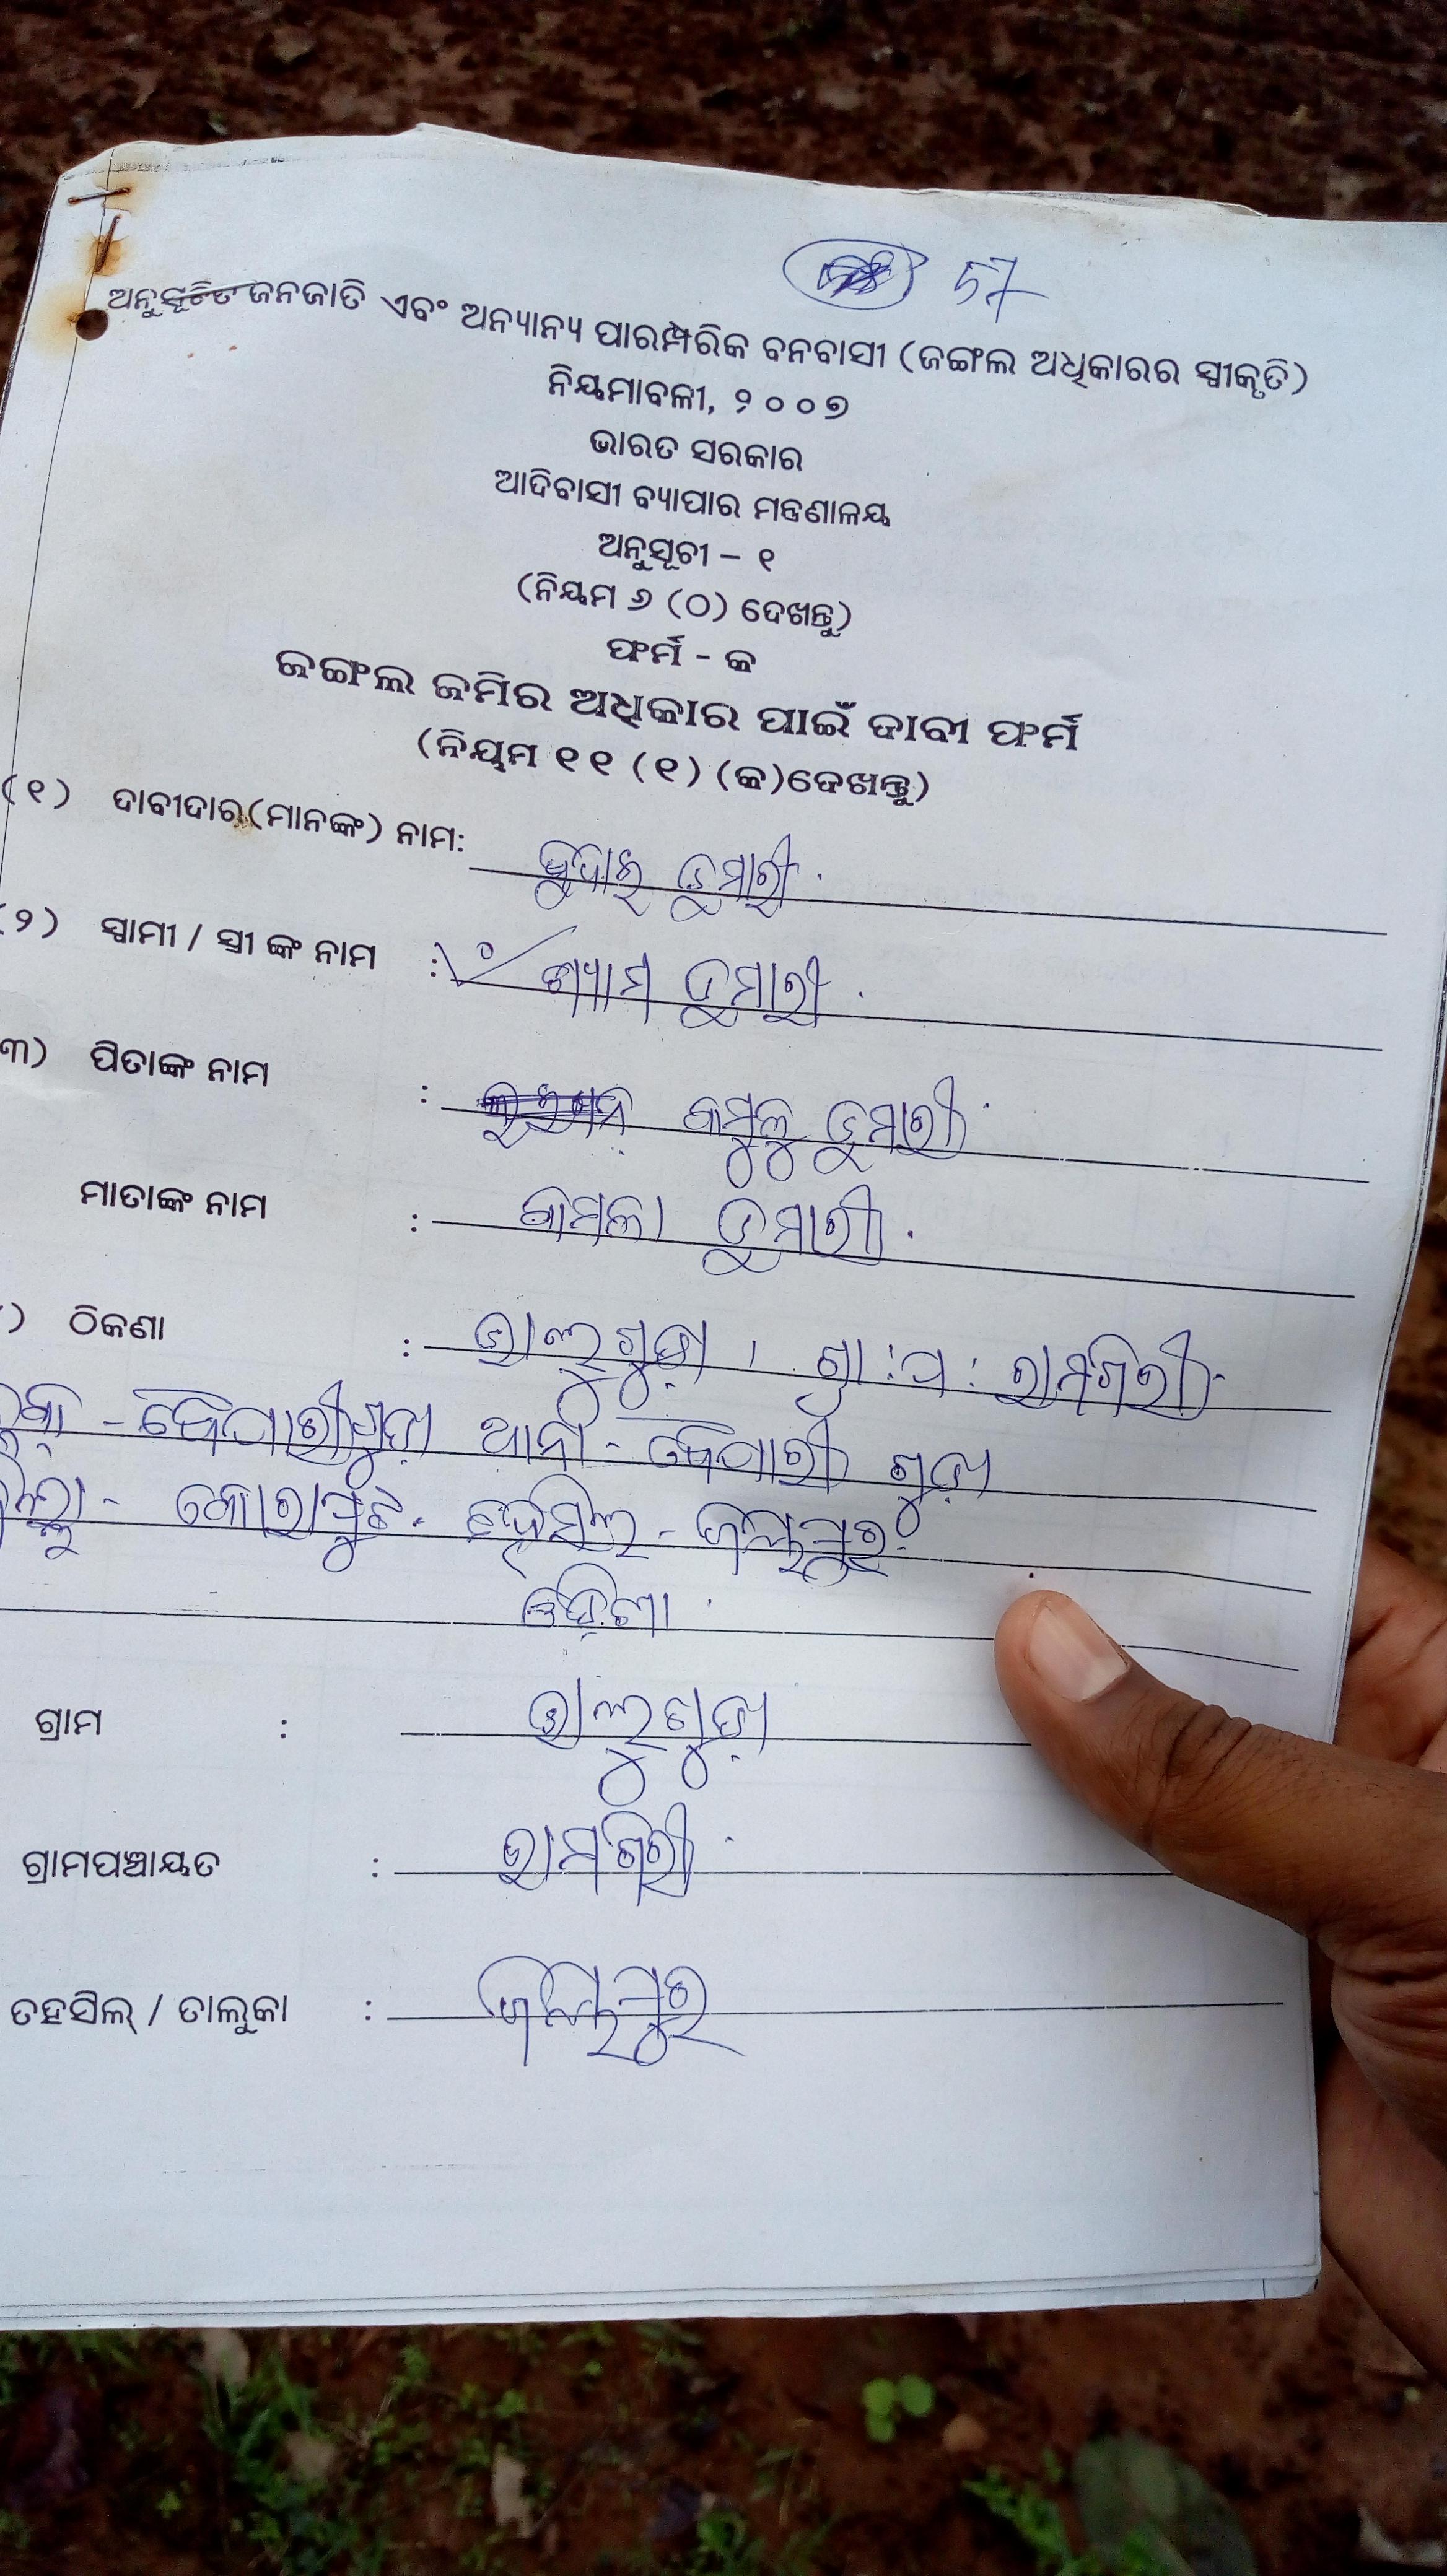 57
ଅନୁସୂଚିତ ଜନଜାତି ଏବଂ ଅନ୍ୟାନ୍ୟ ପାରମ୍ପରିକ ବନବାସୀ (ଜଙ୍ଗଲ ଅଧିକାରର ସ୍ୱୀକୃତି)
ନିୟମାବଳୀ, ୨୦୦୭
ଭାରତ ସରକାର
ଆଦିବାସୀ ବ୍ୟାପାର ମନ୍ତ୍ରଣାଳୟ
ଅନୁସୂଚୀ – ୧
(ନିୟମ ୬ (୦) ଦେଖନ୍ତୁ)
ଫର୍ମ - କ
ଜଙ୍ଗଲ ଜମିର ଅଧିକାର ପାଇଁ ଦାବୀ ଫର୍ମ
(ନିୟମ ୧୧ (୧) (କ)ଦେଖନ୍ତୁ)
(୧) ଦାବୀଦାର(ମାନଙ୍କ) ନାମ: ଡୁମାରୀ
(୨) ସ୍ୱାମୀ / ସ୍ତ୍ରୀ ଙ୍କ ନାମ : ଶ୍ୟାମ ଡୁମାରୀ
୩) ପିତାଙ୍କ ନାମ : ଡୁମାରୀ
ମାତାଙ୍କ ନାମ : କମଳା ଡୁମାରୀ
) ଠିକଣା : ଭାଲୁଗୁଡ଼ା । ଗ୍ରା:ପ: ରାମଗିରୀ
ଥାନା -
କୋରାପୁଟ ତହସିଲ - ଜୟପୁର
ଓଡ଼ିଶା
ଗ୍ରାମ : ଭାଲୁଗୁଡ଼ା
ଗ୍ରାମପଞ୍ଚାୟତ : ରାମଗିରୀ
ତହସିଲ୍ / ତାଲୁକା : ଜୟପୁର